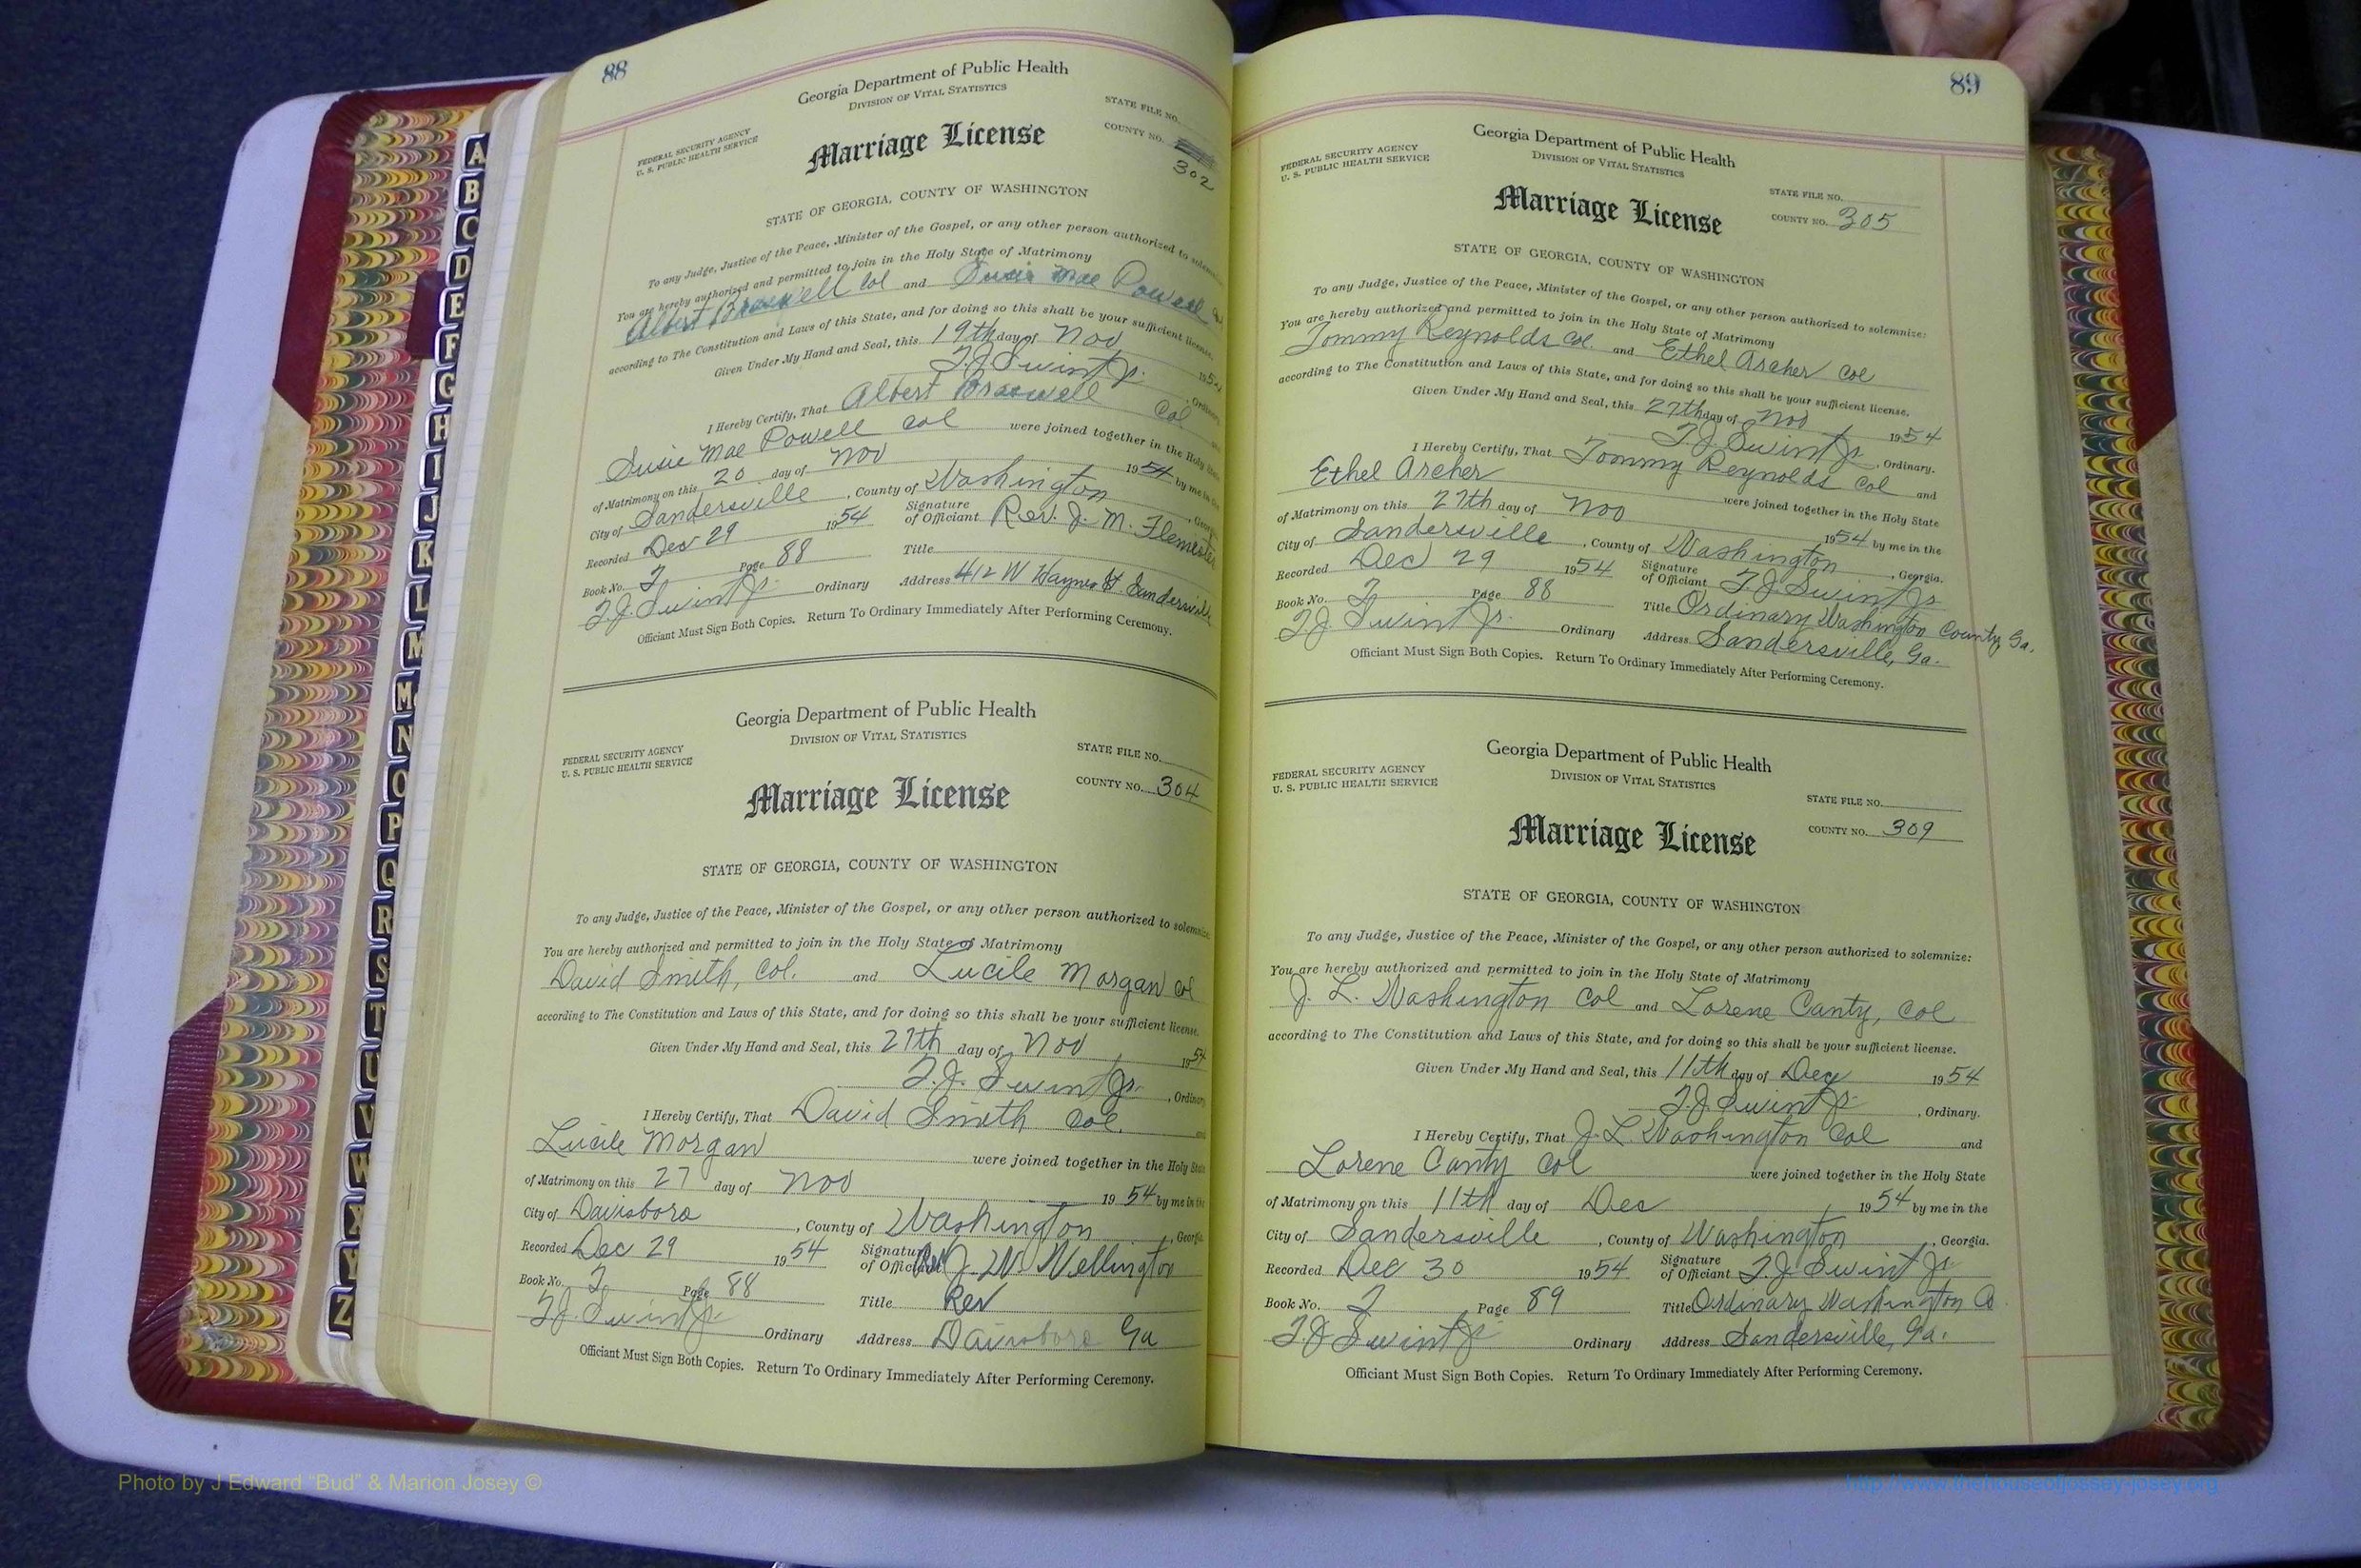 88
Georgia Department of Public Health
DIVISION OF VITAL STATISTICS
FEDERAL SECURITY AGENCY
U. S. PUBLIC HEALTH SERVICE
STATE FILE NO.
COUNTY NO.
302
Marriage License
STATE OF GEORGIA, COUNTY OF WASHINGTON
To any Judge, Justice of the Peace, Minister of the Gospel, or any other person authorized to solemnize
You are hereby authorized and permitted to join in the Holy State of Matrimony
Albert Braswell Col and Susie Mae Powell
according to The Constitution and Laws of this State, and for doing so this shall be your sufficient license.
Given Under My Hand and Seal, this 19th day of Nov 1954
T.J. Swint Jr. , Ordinary
I Hereby Certify, That Albert Braswell Col and
Susie Mae Powell Col were joined together in the Holy State
of Matrimony on this 20 day of Nov 1954 by me in the
City of Sandersville , County of Washington , Georgia
Recorded Dec 29 1954 Signature of Officiant Rev. J. M. Flemister
Book No. 2 Page 88 Title
T.J. Swint Jr. Ordinary Address 412 W Haynes St. Sandersville
Officiant Must Sign Both Copies. Return To Ordinary Immediately After Performing Ceremony.
Georgia Department of Public Health
DIVISION OF VITAL STATISTICS
FEDERAL SECURITY AGENCY
U. S. PUBLIC HEALTH SERVICE
STATE FILE NO.
COUNTY NO. 304
Marriage License
STATE OF GEORGIA, COUNTY OF WASHINGTON
To any Judge, Justice of the Peace, Minister of the Gospel, or any other person authorized to solemnize
You are hereby authorized and permitted to join in the Holy State of Matrimony
David Smith, Col. and Lucile Morgan Col
according to The Constitution and Laws of this State, and for doing so this shall be your sufficient license.
Given Under My Hand and Seal, this 27th day of Nov 1954
T.J. Swint Jr. , Ordinary
I Hereby Certify, That David Smith Col. and
Lucile Morgan were joined together in the Holy State
of Matrimony on this 27 day of Nov 1954 by me in the
City of Davisboro , County of Washington , Georgia
Recorded Dec 29 1954 Signature of Officiant J. W. Wellington
Book No. 2 Page 88 Title Rev
T.J. Swint Jr. Ordinary Address Davisboro Ga
Officiant Must Sign Both Copies. Return To Ordinary Immediately After Performing Ceremony.
89
Georgia Department of Public Health
DIVISION OF VITAL STATISTICS
FEDERAL SECURITY AGENCY
U. S. PUBLIC HEALTH SERVICE
STATE FILE NO.
COUNTY NO. 305
Marriage License
STATE OF GEORGIA, COUNTY OF WASHINGTON
To any Judge, Justice of the Peace, Minister of the Gospel, or any other person authorized to solemnize:
You are hereby authorized and permitted to join in the Holy State of Matrimony
Tommy Reynolds Col. and Ethel Archer Col
according to The Constitution and Laws of this State, and for doing so this shall be your sufficient license.
Given Under My Hand and Seal, this 27th day of Nov 1954
T.J. Swint Jr. , Ordinary.
I Hereby Certify, That Tommy Reynolds Col and
Ethel Archer were joined together in the Holy State
of Matrimony on this 27th day of Nov 1954 by me in the
City of Sandersville , County of Washington , Georgia.
Recorded Dec 29 1954 Signature of Officiant T.J. Swint Jr
Book No. 2 Page 88 Title Ordinary Washington County Ga.
T.J. Swint Jr. Ordinary Address Sandersville, Ga.
Officiant Must Sign Both Copies. Return To Ordinary Immediately After Performing Ceremony.
Georgia Department of Public Health
DIVISION OF VITAL STATISTICS
FEDERAL SECURITY AGENCY
U. S. PUBLIC HEALTH SERVICE
STATE FILE NO.
COUNTY NO. 309
Marriage License
STATE OF GEORGIA, COUNTY OF WASHINGTON
To any Judge, Justice of the Peace, Minister of the Gospel, or any other person authorized to solemnize:
You are hereby authorized and permitted to join in the Holy State of Matrimony
J. L. Washington Col and Lorene Canty, Col
according to The Constitution and Laws of this State, and for doing so this shall be your sufficient license.
Given Under My Hand and Seal, this 11th day of Dec 1954
T.J. Swint Jr. , Ordinary.
I Hereby Certify, That J. L. Washington Col and
Lorene Canty Col were joined together in the Holy State
of Matrimony on this 11th day of Dec 1954 by me in the
City of Sandersville , County of Washington , Georgia.
Recorded Dec 30 1954 Signature of Officiant T.J. Swint Jr
Book No. 2 Page 89 Title Ordinary Washington Co
T.J. Swint Jr Ordinary Address Sandersville, Ga.
Officiant Must Sign Both Copies. Return To Ordinary Immediately After Performing Ceremony.
A
B
C
D
E
F
G
H
I
J
K
L
M
M
N
O
P
Q
R
S
T
U
V
W
X
Y
Z
Photo by J Edward “Bud” & Marion Josey ©
http://www.thehouseofjossay-josey.org